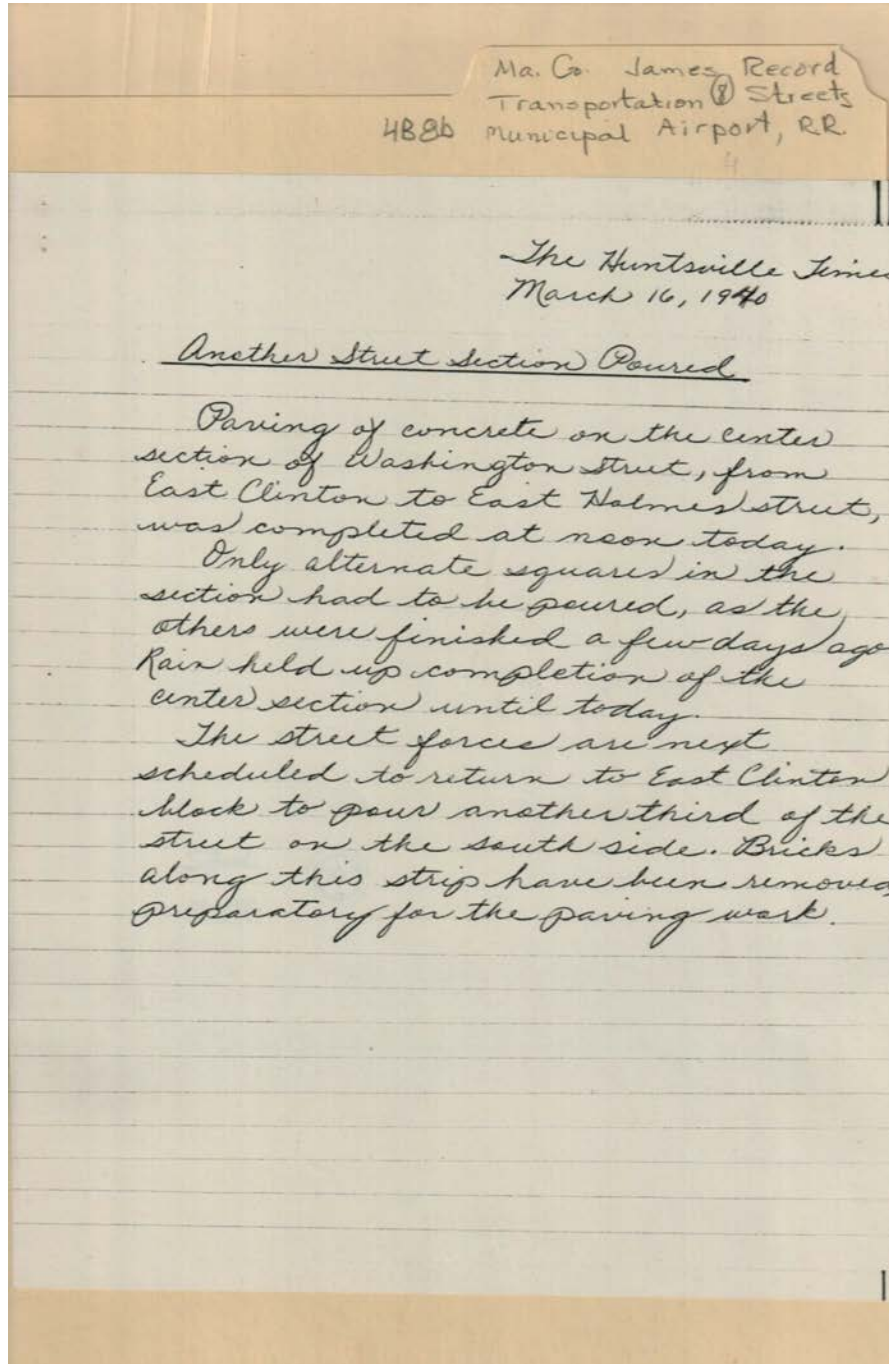 Ma. Co. James Record
Transportation ⑧ Streets
4B8b Municipal Airport, RR
4
The Huntsville Times
March 16, 1940
Another Street Section Poured
Paving of concrete on the center
section of Washington Street, from
East Clinton to East Holmes street,
was completed at noon today.
Only alternate squares in the
section had to be poured, as the
others were finished a few days ago
Rain held up completion of the
center section until today.
The street forces are next
scheduled to return to East Clinton
block to pour another third of the
street on the south side. Bricks
along this strip have been removed
preparatory for the paving work.